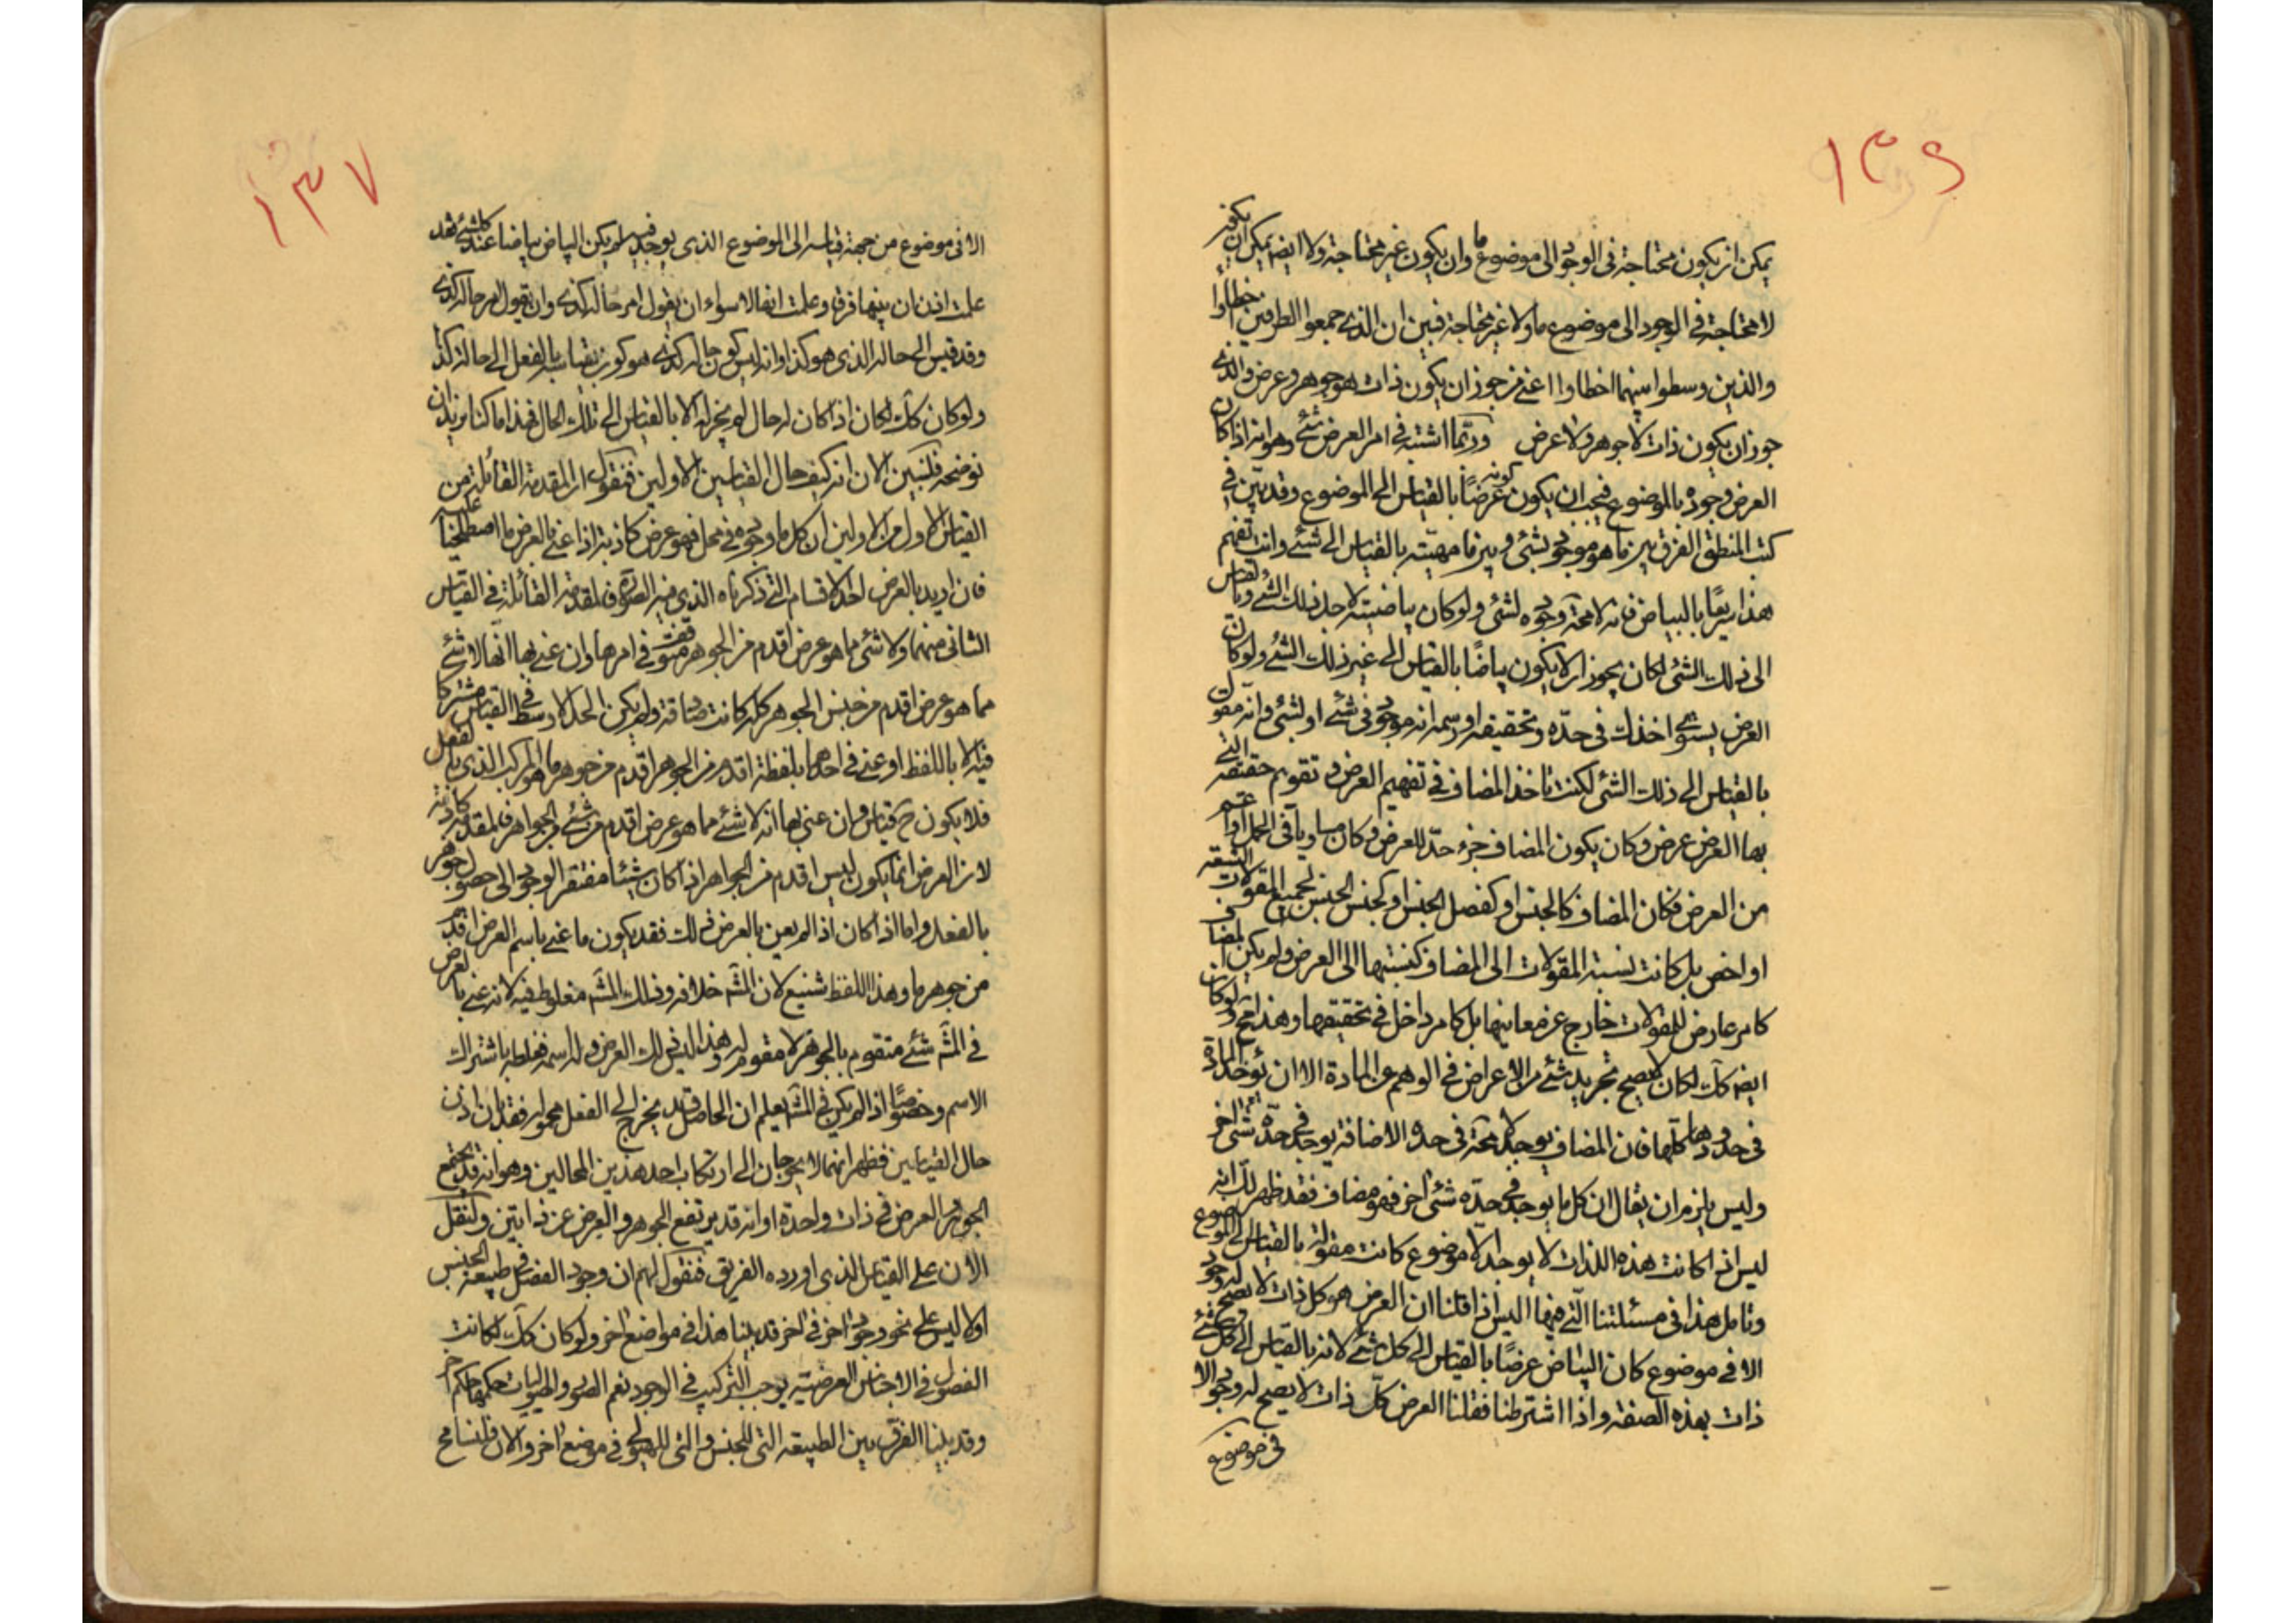 ١٣٦
يمكن ان يكون محتاجة فى الوجود الى موضوع ما وان يكون غير محتاجة ولا ايضا يمكن ان يكون
لا محتاجة فى الوجود الى موضوع ما ولا غير محتاجة فبين ان الذى جمعوا الطرفين اخطاوا
والذين وسطوا بينهما اخطاوا اعنى من جوز ان يكون ذات هو جوهر وعرض والذى
جوز ان يكون ذات لا جوهر ولا عرض وربما اشتبه فى امر العرض شئ وهو انه اذا كان
العرض وجوده بالموضوع فيجب ان يكون كونه عرضًا بالقياس الى الموضوع وقد بين فى
كتب المنطق الفرق بين ما هو موجود بشئ وبين ما مهيته بالقياس الى شئ وانت تفهم
هذا سريعًا بالبياض فانه لا محة وجوده لشئ ولو كان بياضيته لاجل ذلك الشئ وبالقياس
الى ذلك الشئ لكان يجوز ان لا يكون بياضًا بالقياس الى غير ذلك الشئ ولو كان
العرض اخذت فى حدّه وتحقيقه او رسمه انه موجود فى شئ او لشئ وانه مقول
بالقياس الى ذلك الشئ لكنت تاخذ المضاف فى تفهيم العرض وفى تقويم حقيقته التى
بها العرض عرض وكان يكون المضاف جزء حدّ للعرض وكان مساويا فى الحمل او اعم
من العرض فكان المضاف كالجنس او كفصل الجنس او كجنس الجنس لجميع المقولات التسعة
او اخص بل كانت نسبة المقولات الى المضاف كنسبتها الى العرض ولم يكن المضاف
كامر عارض للمقولات خارج عن معانيها بل كامر داخل فى تحقيقها وهذا مح ولو كان
ايضا كك لكان لا يصح تجريد شئ من الاعراض فى الوهم عن المادة الا ان يؤخذ المادة
فى حدودها كلها فان المضاف يوجد لا محة فى حده الاضافة يوجد فى حدّه شئ اخر
وليس يلزم ان يقال ان كل ما يوجد فى حدّه شئ اخر فهو مضاف فقد ظهر لك انه
ليس اذا كانت هذه اللذات لا يوجد الا موضوع كانت مقولة بالقياس الى الموضوع
وتامل هذا فى مسئلتنا التى فيها اليس اذا قلنا ان العرض هو كل ذات لا يصح له وجود
الا فى موضوع كان البياض عرضًا بالقياس الى كل شئ لانه بالقياس الى كل شئ
ذات بهذه الصفة واذا اشترطنا فقلنا العرض كلّ ذات لا يصح له وجود الا
فى موضوع
١٣٧
الا فى موضوع من جهة قياسه الى الموضوع الذى يوجد فيه لم يكن البياض بياضا عند كل شئ فقد
علمت اذن ان بينهما فرق وعلمت انفا لا سواء ان يقول امر حاله كذى وان يقول امر حاله كذى
وقد قيس الى حاله الذى هو كذا وانه ليس كون حاله كذى هو كون يقاس بالفعل الى حاله كذا
ولو كان كك لكان اذا كان له حال لم يخرله الا بالقياس الى تلك الحال فهذا ما كنا نريد ان
نوضحه فلنبين الان انه كيف حال القياسين الاولين فنقول ان المقدمة القائلة من
القياس الاول من الاولين ان كل ما وجوده فى محل فهو عرض كاذبة اذا عنى بالعرض ما اصطلحنا عليه
فان اريد بالعرض احد الاقسام التى ذكرناه الذى فيه الصورة فالمقدمة القائلة فى القياس
الثانى منهما ولا شئ مما هو عرض اقدم من الجوهر متوقف فى امرها وان عنى بها انها لا شئ
مما هو عرض اقدم من جنس الجوهر كله كانت صادقة ولم يكن الحد الاوسط فى القياس مشتركا
فيه الا باللفظ او عنى فى احدهما بلفظة اقدم من الجوهر اقدم من جوهر ما هو المركب الذى بالفعل
فلا يكون ح قياس وان عنى بها انه لا شئ مما هو عرض اقدم من شئ من الجواهر فالمقدمة كاذبة
لان العرض انما يكون ليس اقدم من الجواهر اذا كان شيئا مفتقر الوجود الى حصول جوهر
بالفعل واما اذا كان اذا لم يعن بالعرض ذلك فقد يكون ما عنى باسم العرض اقدم
من جوهر ما وهذا اللفظ شنيع لان المشَه خلافه وذلك المشَه مغلوط فيه لانه عنى بالعرض
فى المشَه شئ متقوم بالجوهر لا مقوم له وهذا ليس ذلك العرض وله اسمه فغلطه باشتراك
الاسم وخصوصًا اذا لم يكن فى المشَه يعلم ان الحاصل قد يخرج الى الفعل محوله فقد بان اذن
حال القياسين فظهر انهما لا يحوجان الى ارتكاب احد هذين المحالين وهو انه قد يجتمع
الجوهر العرض فى ذات واحدة او انه قد يرتفع الجوهر والعرض عن ذاتين ولنقل
الان على القياس الذى اورده الفريق فنقول لهم ان وجود الفصل فى طبيعة الجنس
اولا ليس على نحو وجود اخر فى اخر قد بينا هذا فى مواضع اخر ولو كان كك لكانت
الفصول فى الاجناس العرضية يوجب التركيب فى الوجود نعم الصور والهيوليات حكمها حكم اخر
وقد بينا الفرق بين الطبيعة التى للجنس والتى للهيولى فى موضع اخر والان فلنسامح